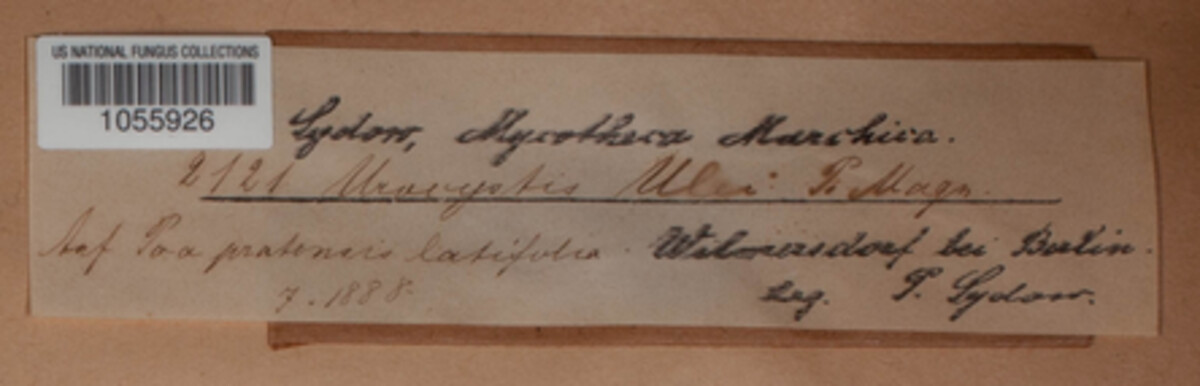 US NATIONAL FUNGUS COLLECTIONS
1055926
Sydow, Mycotheca Marchica.
2121 Urocystis Ulei P. Magn.
Auf Poa pratensis latifolia. Wilmersdorf bei Berlin.
7. 1888. Leg. P. Sydow.